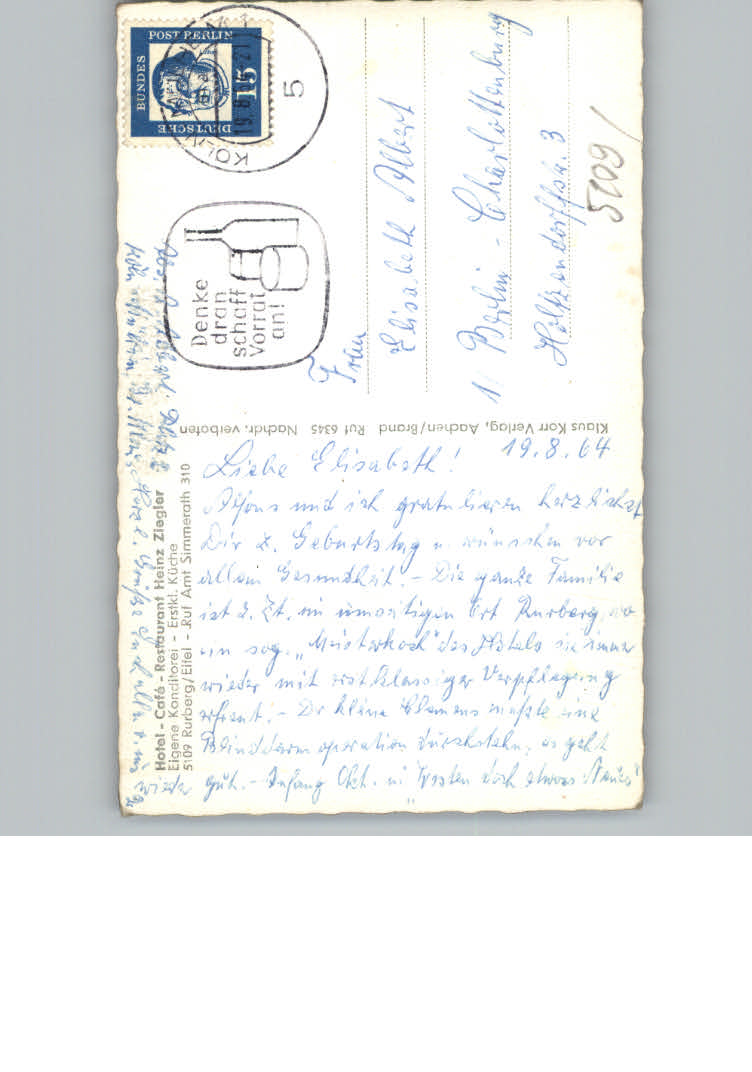 DEUTSCHE BUNDESPOST BERLIN
15
KÖLN
19.8.
5
Denke
dran
schaff
Vorrat
an!
Frau
Elisabeth Albert
1 Berlin - Charlottenburg
Holtzendorffstr. 3
5109
Klaus Korr Verlag, Aachen/Brand Ruf 6345 Nachdr. verboten
Hotel - Café - Restaurant Heinz Ziegler
Eigene Konditorei - Erstkl. Küche
5109 Rurberg/Eifel - Ruf Amt Simmerath 310
19.8.64
Liebe Elisabeth!
Alfons und ich gratulieren herzlichst
Dir z. Geburtstag u. wünschen vor
allem Gesundheit. - Die ganze Familie
ist z. Zt. im Ort Rurberg, wo
ein sog. "Meisterkoch" des Hotels sie immer
wieder mit erstklassiger Verpflegung
erfreut. - Der kleine Clemens mußte eine
Blinddarmoperation durchstehn, es geht
wieder gut. - Anfang Okt. "Im Westen doch etwas Neues"